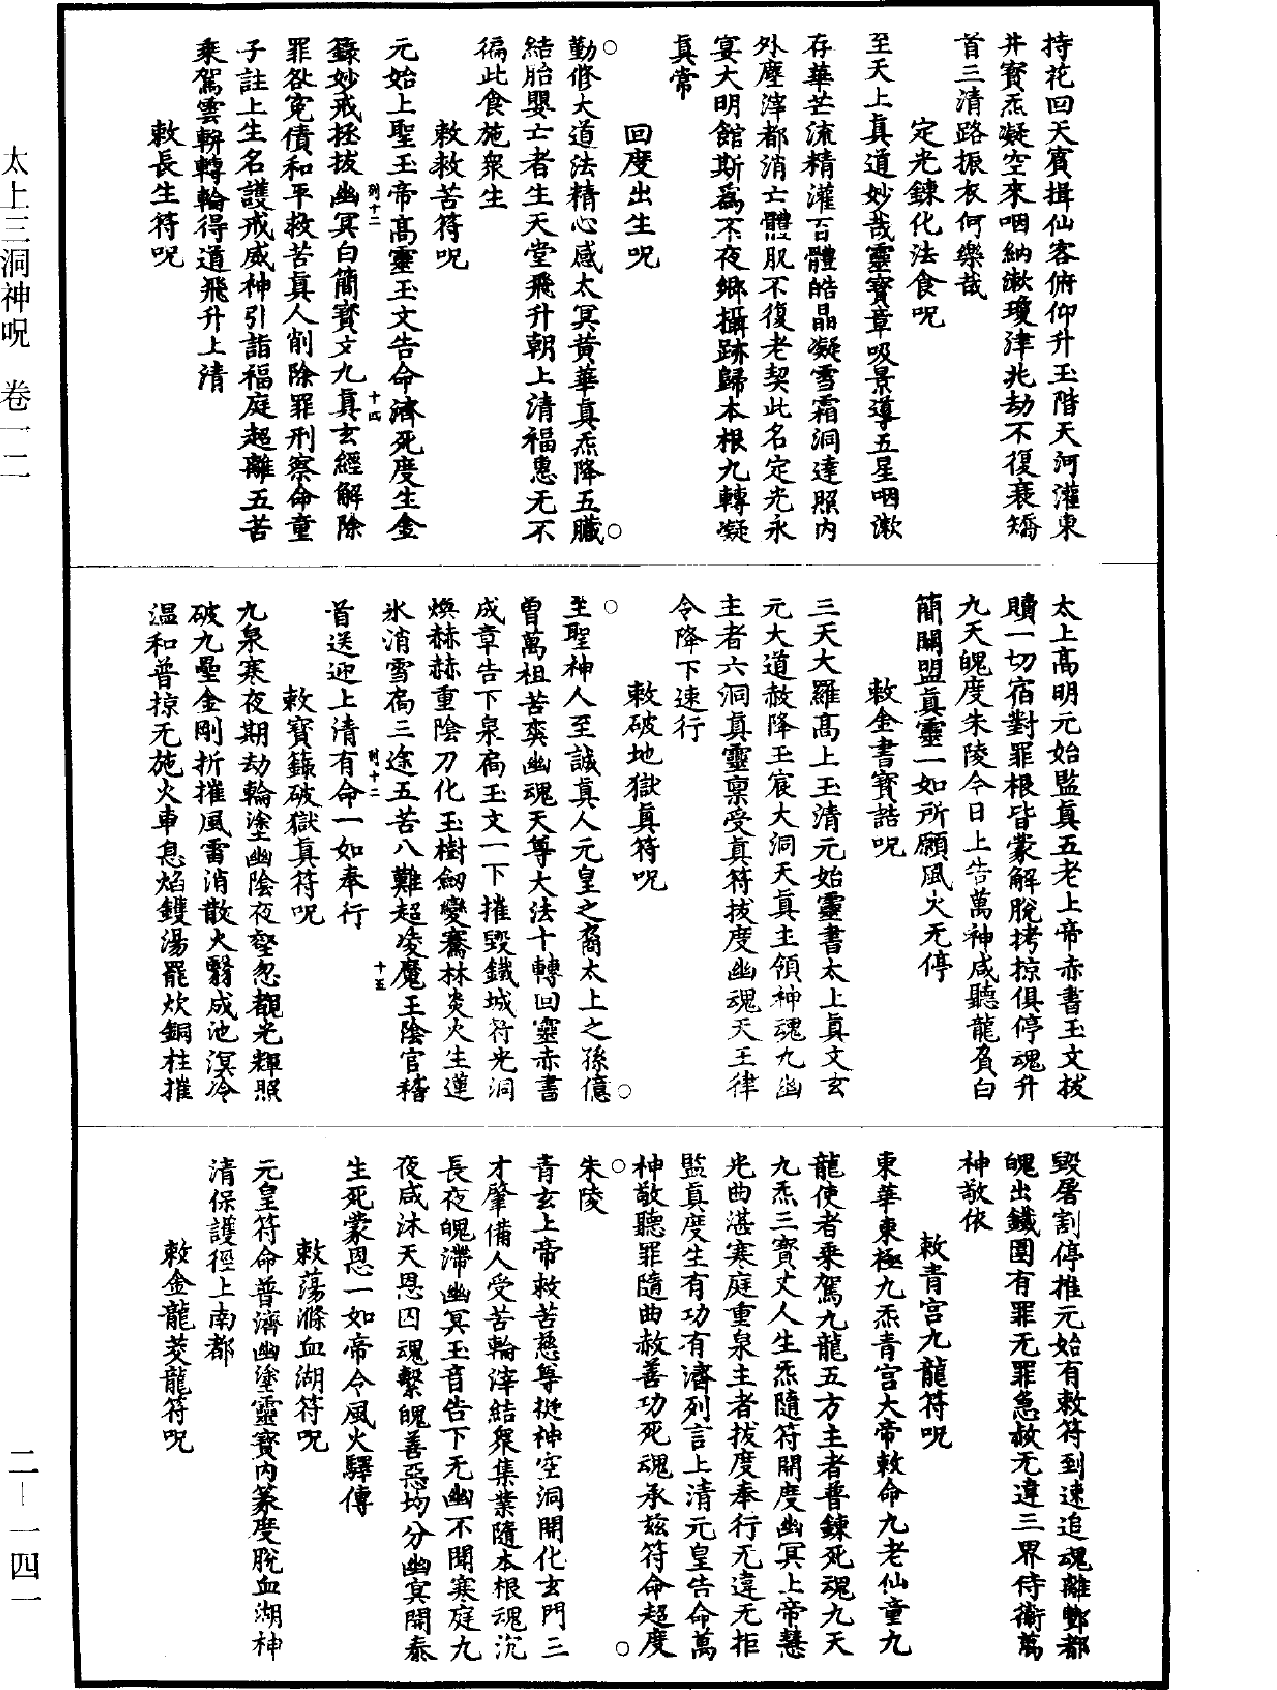 太上三洞神呪 卷一二
二—一四一
持花回天賓揖仙客俯仰升玉階天河灌東
井寶炁凝空來咽納漱瓊津兆劫不復衰矯
首三清路振衣何樂哉
定光鍊化法食呪
至天上真道妙哉靈寶章吸景導五星咽漱
存華芒流精灌百體皓晶凝雪霜洞達照内
外塵滓都消亡體肌不復老契此名定光永
宴大明館斯爲不夜鄉攝跡歸本根九轉凝
真常
回度出生呪
勤修大道法精心感太冥黄華真炁降五臟
結胎嬰亡者生天堂飛升朝上清福惠无不
徧此食施衆生
敕救苦符呪
元始上聖玉帝高靈玉文告命濟死度生金
籙妙戒拯拔幽冥白簡寳文九真玄經解除
罪咎寃債和平救苦真人削除罪刑察命童
子註上生名護戒威神引詣福庭超離五苦
乘駕雲軿轉輪得道飛升上清
敕長生符呪
列十二
十四
太上高明元始監真五老上帝赤書玉文拔
贖一切宿對罪根皆蒙解脱拷掠俱停魂升
九天魄度朱陵今日上告萬神咸聽龍負白
簡關盟真靈一如所願風火无停
敕金書寶誥呪
三天大羅高上玉清元始靈書太上真文玄
元大道赦降玉宸大洞天真主領神魂九幽
主者六洞真靈禀受真符拔度幽魂天王律
令降下速行
敕破地獄真符呪
至聖神人至誠真人元皇之裔太上之孫億
曽萬祖苦爽幽魂天尊大法十轉回靈赤書
成章告下泉扃玉文一下摧毁鐵城符光洞
煥赫赫重陰刀化玉樹劒變騫林炎火生蓮
氷消雪扃三途五苦八難超凌魔王陰官稽
首送迎上清有命一如奉行
敕寳籙破獄真符呪
九泉寒夜期劫輪塗幽陰夜壑忽覩光輝照
破九壘金剛折摧風雷消散火翳成池溟冷
温和普掠无施火車息焰鑊湯罷炊銅柱摧
列十二
十五
毁屠割停推元始有敕符到速追魂離酆都
魄出鐵圍有罪无罪急赦无違三界侍衞萬
神敬依
敕青宫九龍符呪
東華東極九炁青宫大帝敕命九老仙童九
龍使者乘駕九龍五方主者普鍊死魂九天
九炁三寳丈人生炁隨符開度幽冥上帝慧
光曲湛寒庭重泉主者拔度奉行无違无拒
監真度生有功有濟列言上清元皇告命萬
神敬聽罪隨曲赦善功死魂承兹符命超度
朱陵
青玄上帝救苦慈尊挺神空洞開化玄門三
才肇備人受苦輪滓結衆集業隨本根魂沉
長夜魄滯幽冥玉音告下无幽不開寒庭九
夜咸沐天恩囚魂繫魄善惡均分幽冥開泰
生死蒙恩一如帝令風火驛傳
敕蕩滌血湖符呪
元皇符命普濟幽塗靈寳内篆度脱血湖神
清保護徑上南都
敕金龍茭龍符呪